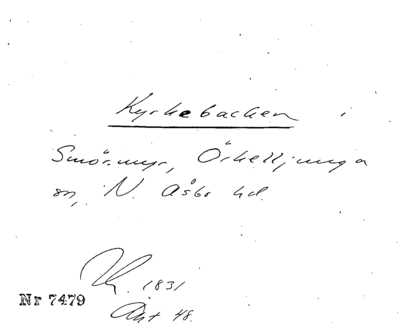 Kyrkebacken i
Smörmyr, Örkelljunga
sn, N. Åsbo hd.
1831
Nr 7479
Akt 48.